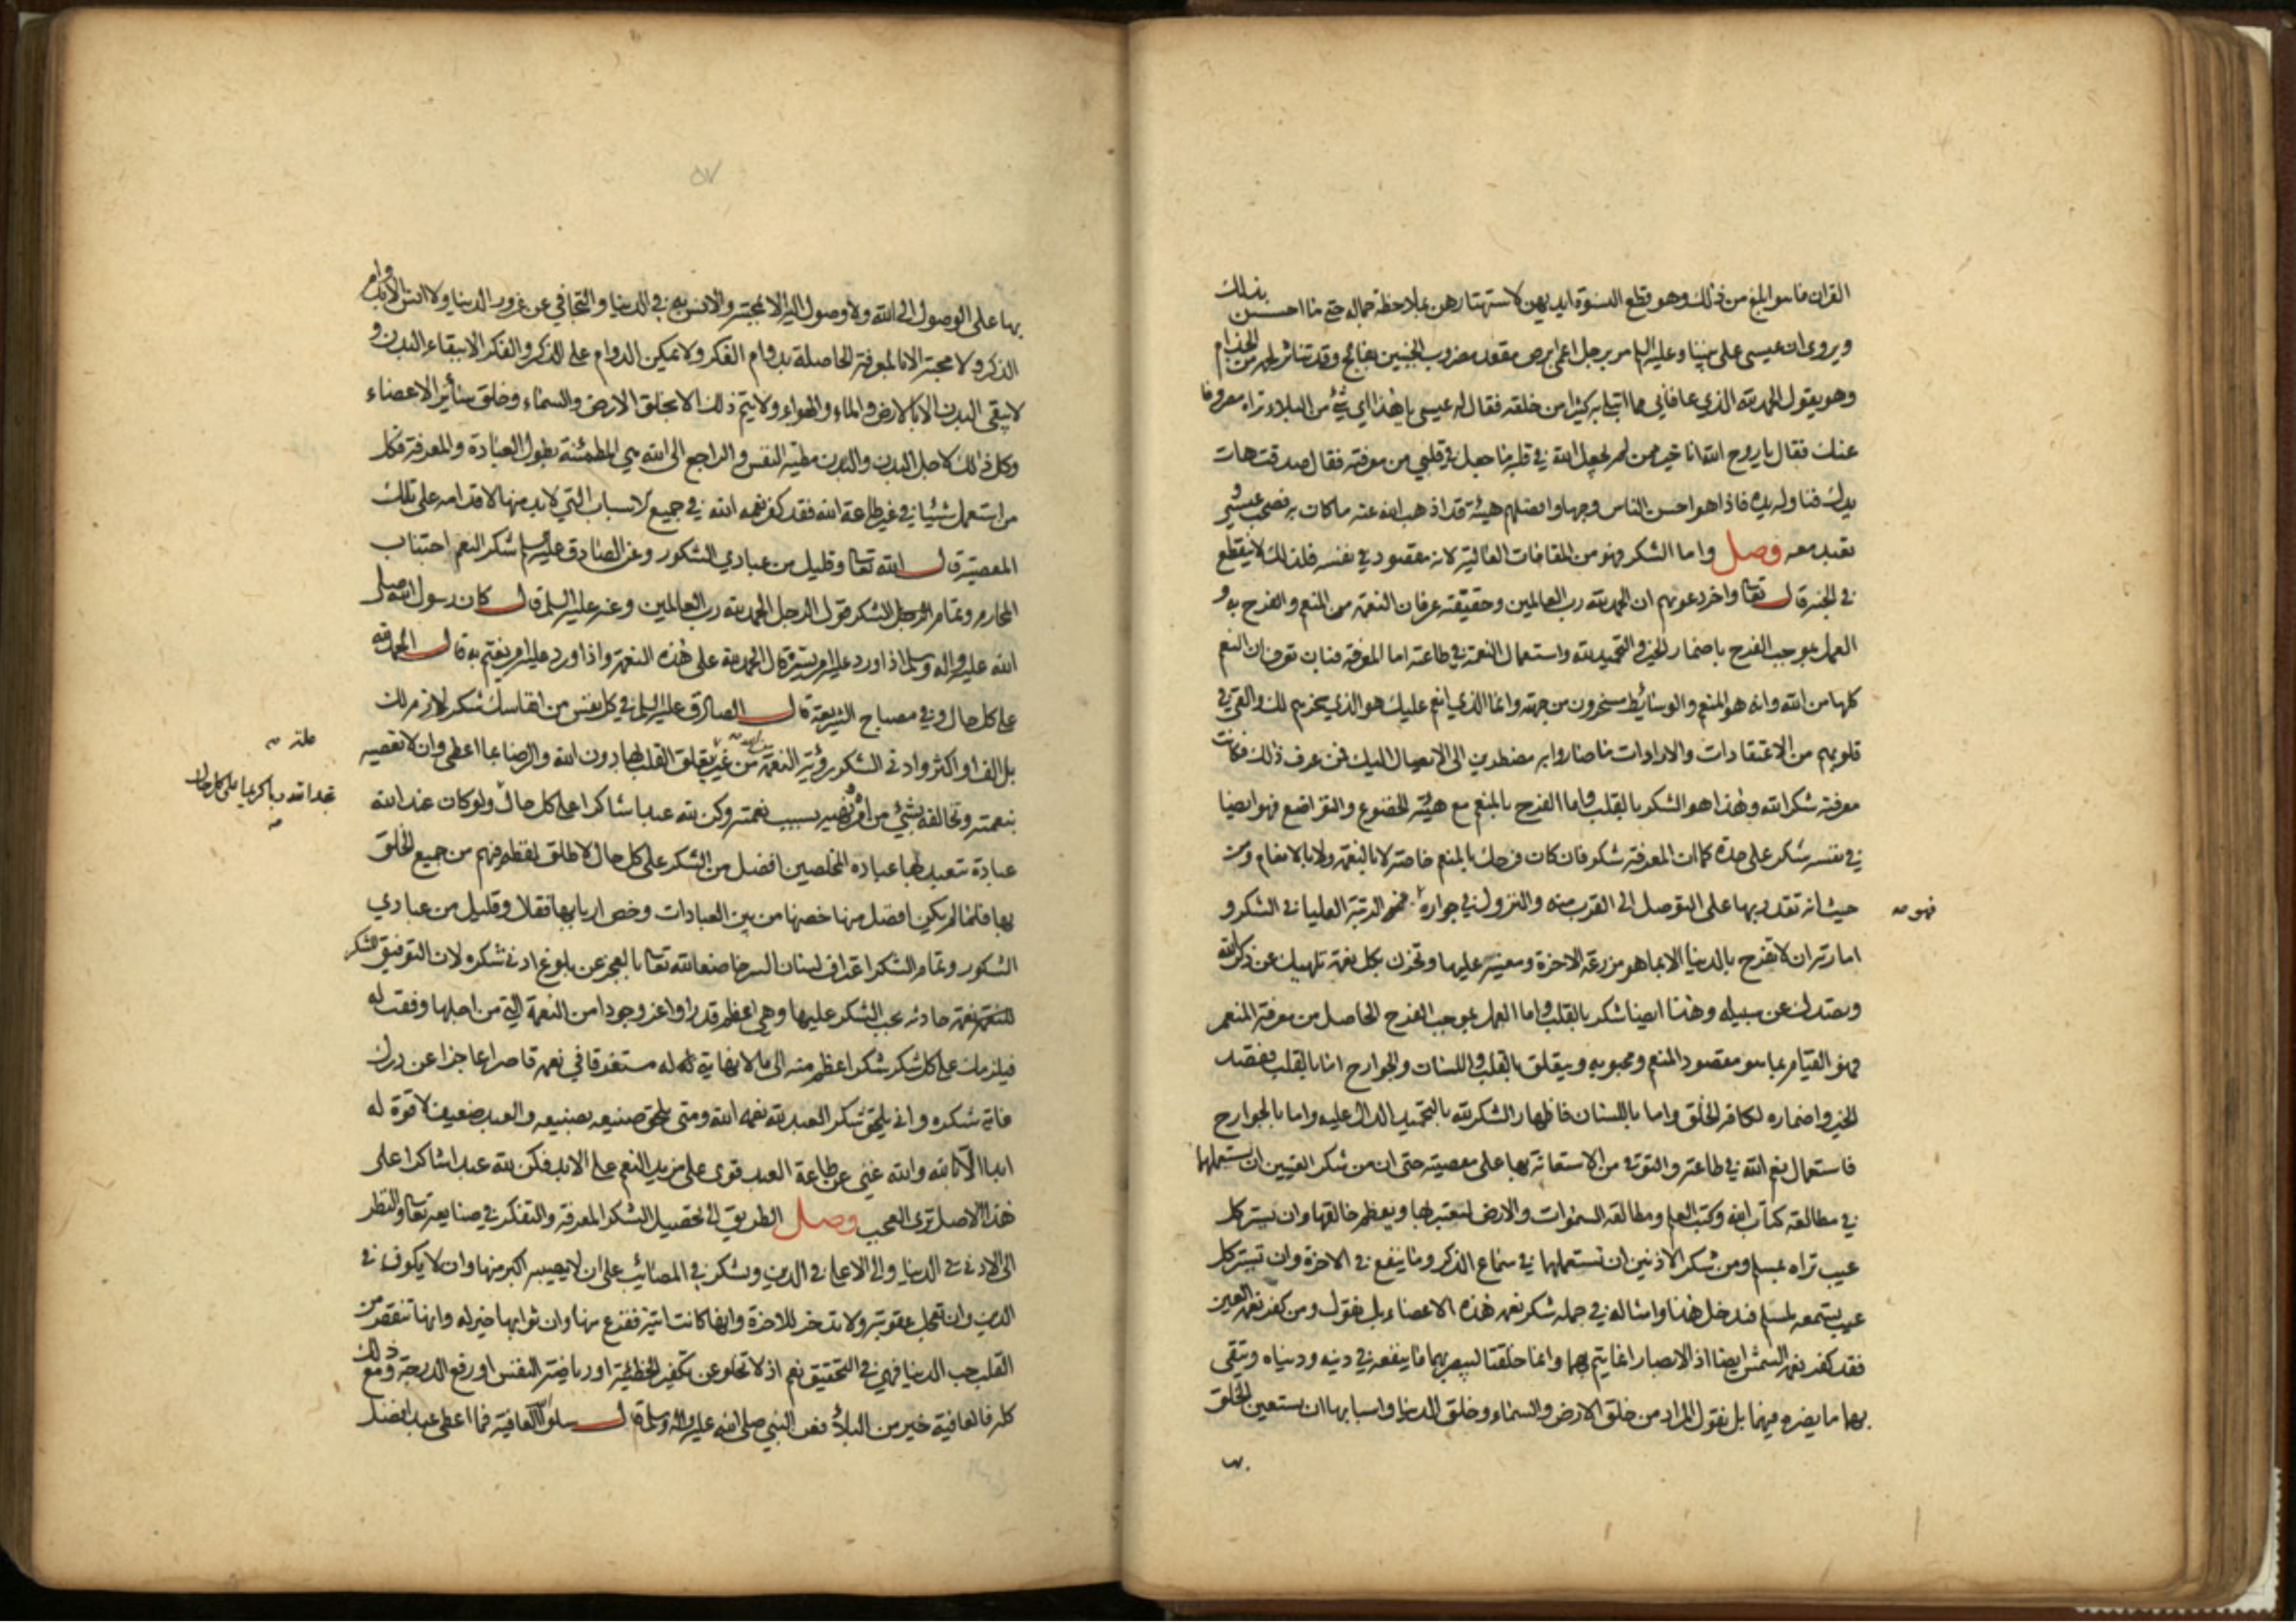 القران ما هو ابلغ من ذلك وهو قطع النسوة ايديهن لاستهتارهن بملاحظة جماله حتى ما احسسن بذلك
ويروى ان عيسى على نبينا وعليه السلام مر برجل اعمى ابرص مقعد مضروب الجنبين بفالج وقد تناثر لحمه من الجذام
وهو يقول الحمد لله الذي عافاني مما ابتلى به كثيرا من خلقه فقال له عيسى يا هذا اي شيء من البلاء تراه مصروفا
عنك فقال يا روح الله انا خير ممن لم يجعل الله في قلبه ما جعل في قلبي من معرفته فقال صدقت هات
يدك فناوله يده فاذا هو احسن الناس وجها وافضلهم هيئة قد اذهب الله عنه ما كان به فصحب عيسى و
تعبد معه وصل واما الشكر فهو من المقامات العالية لانه مقصود في نفسه فلذلك لا ينقطع
في الجنة قال تعالى واخر دعويهم ان الحمد لله رب العالمين وحقيقته عرفان النعمة من المنعم والفرح به و
العمل بموجب الفرح باضمار الخير والتحميد لله واستعمال النعمة في طاعته اما المعرفة فبان تعرف ان النعم
كلها من الله وانه هو المنعم والوسائط مسخرون من جهته وانما الذي انعم عليك هو الذي سخرهم لك والقى في
قلوبهم من الاعتقادات والارادات ما صاروا به مضطرين الى الايصال اليك فمن عرف ذلك فكانت
معرفته شكر الله وهذا هو الشكر بالقلب واما الفرح بالمنعم مع هيئة الخضوع والتواضع فهو ايضا
في نفسه شكر على حدة كما ان المعرفة شكر فان كان فرحك بالمنعم خاصة لا بالنعمة ولا بالانعام ومن
حيث انه تقدر بها على التوصل الى القرب منه والنزول في جواره فهو الرتبة العليا في الشكر و
فهو صه
امارته ان لا تفرح بالدنيا الا بما هو مزرعة الاخرة ومعينة عليها وتحزن بكل نعمة تلهيك عن ذكر الله
وتصدك عن سبيله وهذا ايضا شكر بالقلب واما العمل بموجب الفرح الحاصل من معرفة المنعم
فهو القيام بما هو مقصود المنعم ومحبوبه ويتعلق بالقلب واللسان والجوارح اما بالقلب فقصد
الخير واضماره لكافة الخلق واما باللسان فاظهار الشكر لله بالتحميد الدال عليه واما بالجوارح
فاستعمال نعم الله في طاعته والتوقي من الاستعانة بها على معصيته حتى ان من شكر العينين ان يستعملها
في مطالعة كتاب الله وكتب العلم ومطالعة السموات والارض لتعتبر بها ويعظم خالقها وان يستر كل
عيب تراه لمسلم ومن شكر الاذنين ان تستعملها في سماع الذكر وما ينفع في الاخرة وان تستر كل
عيب يستمعه لمسلم فيدخل هذا وامثاله في جملة شكر نعمة هذه الاعضاء بل نقول ومن كفر نعمة العين
فقد كفر نعمة الشمس ايضا اذ الابصار انما يتم بهما وانما خلقتا ليبصر بهما ما ينفعه في دينه ودنياه ويتقي
بهما ما يضره فيهما بل نقول المراد من خلق الارض والسماء وخلق الدنيا واسبابها ان يستعين الخلق
٥٧
بها على الوصول الى الله ولا وصول اليه الا بمحبته والانس به في الدنيا والتجافي عن غرور الدنيا ولا انس الا بدوام
الذكر ولا محبة الا بالمعرفة الحاصلة بدوام الفكر ولا يمكن الدوام على الذكر والفكر الا ببقاء البدن و
لا يبقى البدن الا بالارض والماء والهواء ولا يتم ذلك الا بخلق الارض والسماء وخلق سائر الاعضاء
وكل ذلك لاجل البدن والبدن مطية النفس والراجع الى الله هي المطمئنة بطول العبادة والمعرفة فكل
من استعمل شيئا في غير طاعة الله فقد كفر نعمة الله في جميع الاسباب التي لا بد منها لاقدامه على تلك
المعصية قال الله تعالى وقليل من عبادي الشكور وعن الصادق عليه السلام شكر النعم اجتناب
المحارم وتمام الشكر قول الرجل الحمد لله رب العالمين وعنه عليه السلام قال كان رسول الله صلى
الله عليه واله وسلم اذا ورد عليه امر يسره قال الحمد لله على هذه النعمة واذا ورد عليه امر يغتم به قال الحمد لله
على كل حال وفي مصباح الشريعة قال الصادق عليه السلام في كل نفس من انفاسك شكر لازم لك
بل الف او اكثر وادنى الشكر رؤية النعمة من الله من غير علة يتعلق القلب بها دون الله والرضا بما اعطى وان لا تعصيه
علة صه
بنعمته وتخالفه بشيء من امره ونهيه بسبب نعمته وكن لله عبدا شاكرا على كل حال ولو كان عند الله
تجد الله ربا كريما على كل حال صه
عبادة تتعبد بها عباده المخلصين افضل من الشكر على كل حال لاطلق لفظه فيهم من جميع الخلق
بها فلما لم يكن افضل منها خصها من بين العبادات وخص اربابها فقال وقليل من عبادي
الشكور وتمام الشكر اعتراف لسان السر خاضعا لله تعالى بالعجز عن بلوغ ادنى شكره لان التوفيق للشكر
للنعمة نعمة حادثة يجب الشكر عليها وهي اعظم قدرا واعز وجودا من النعمة التي من اجلها وفقت له
فيلزمك على كل شكر شكرا اعظم منه الى ما لا نهاية له مستغرقا في نعمه قاصرا عاجزا عن درك
غاية شكره وانى يلحق شكر العبد لله نعمة الله ومتى يلحق صنيعه بصنيعه والعبد ضعيف لا قوة له
ابدا الا بالله والله غني عن طاعة العبد قوي على مزيد النعم على الابد فكن لله عبدا شاكرا على
هذا الاصل ترى العجب وصل الطريق الى تحصيل الشكر المعرفة والتفكر في صنايعه تعالى والنظر
الى الادنى في الدنيا والى الاعلى في الدين وتشكر في المصائب على ان لا يصيبه اكبر منها وان لا يكون في
الدين وان تعجل عقوبته ولا تدخر للاخرة وانها كانت اتية ففرغ منها وان ثوابها خير له وانها تنقص من
القلب حب الدنيا فهي في التحقيق نعم اذ لا تخلو عن تكفير الخطيئة او رياضة النفس او رفع الدرجة ومع ذلك
كله فالعافية خير من البلاء فعن النبي صلى الله عليه واله وسلم قال سلوا الله العافية فما اعطي عبد افضل